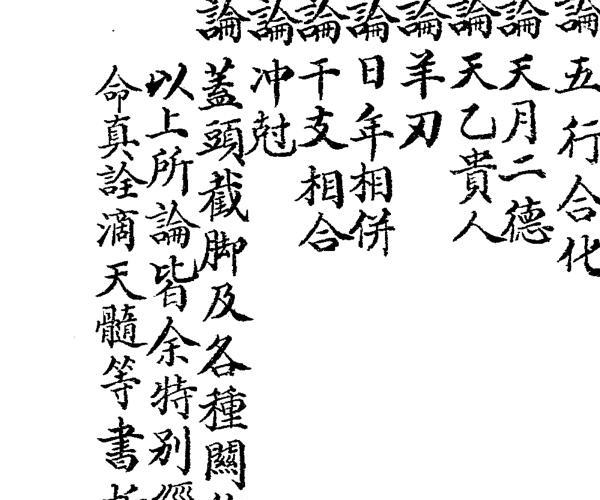 論五行合化
論天月二德
論天乙貴人
論羊刃
論日年相併
論干支相合
論冲尅
論蓋頭截脚及各種關
以上所論皆余特別經
命真詮滴天髓等書